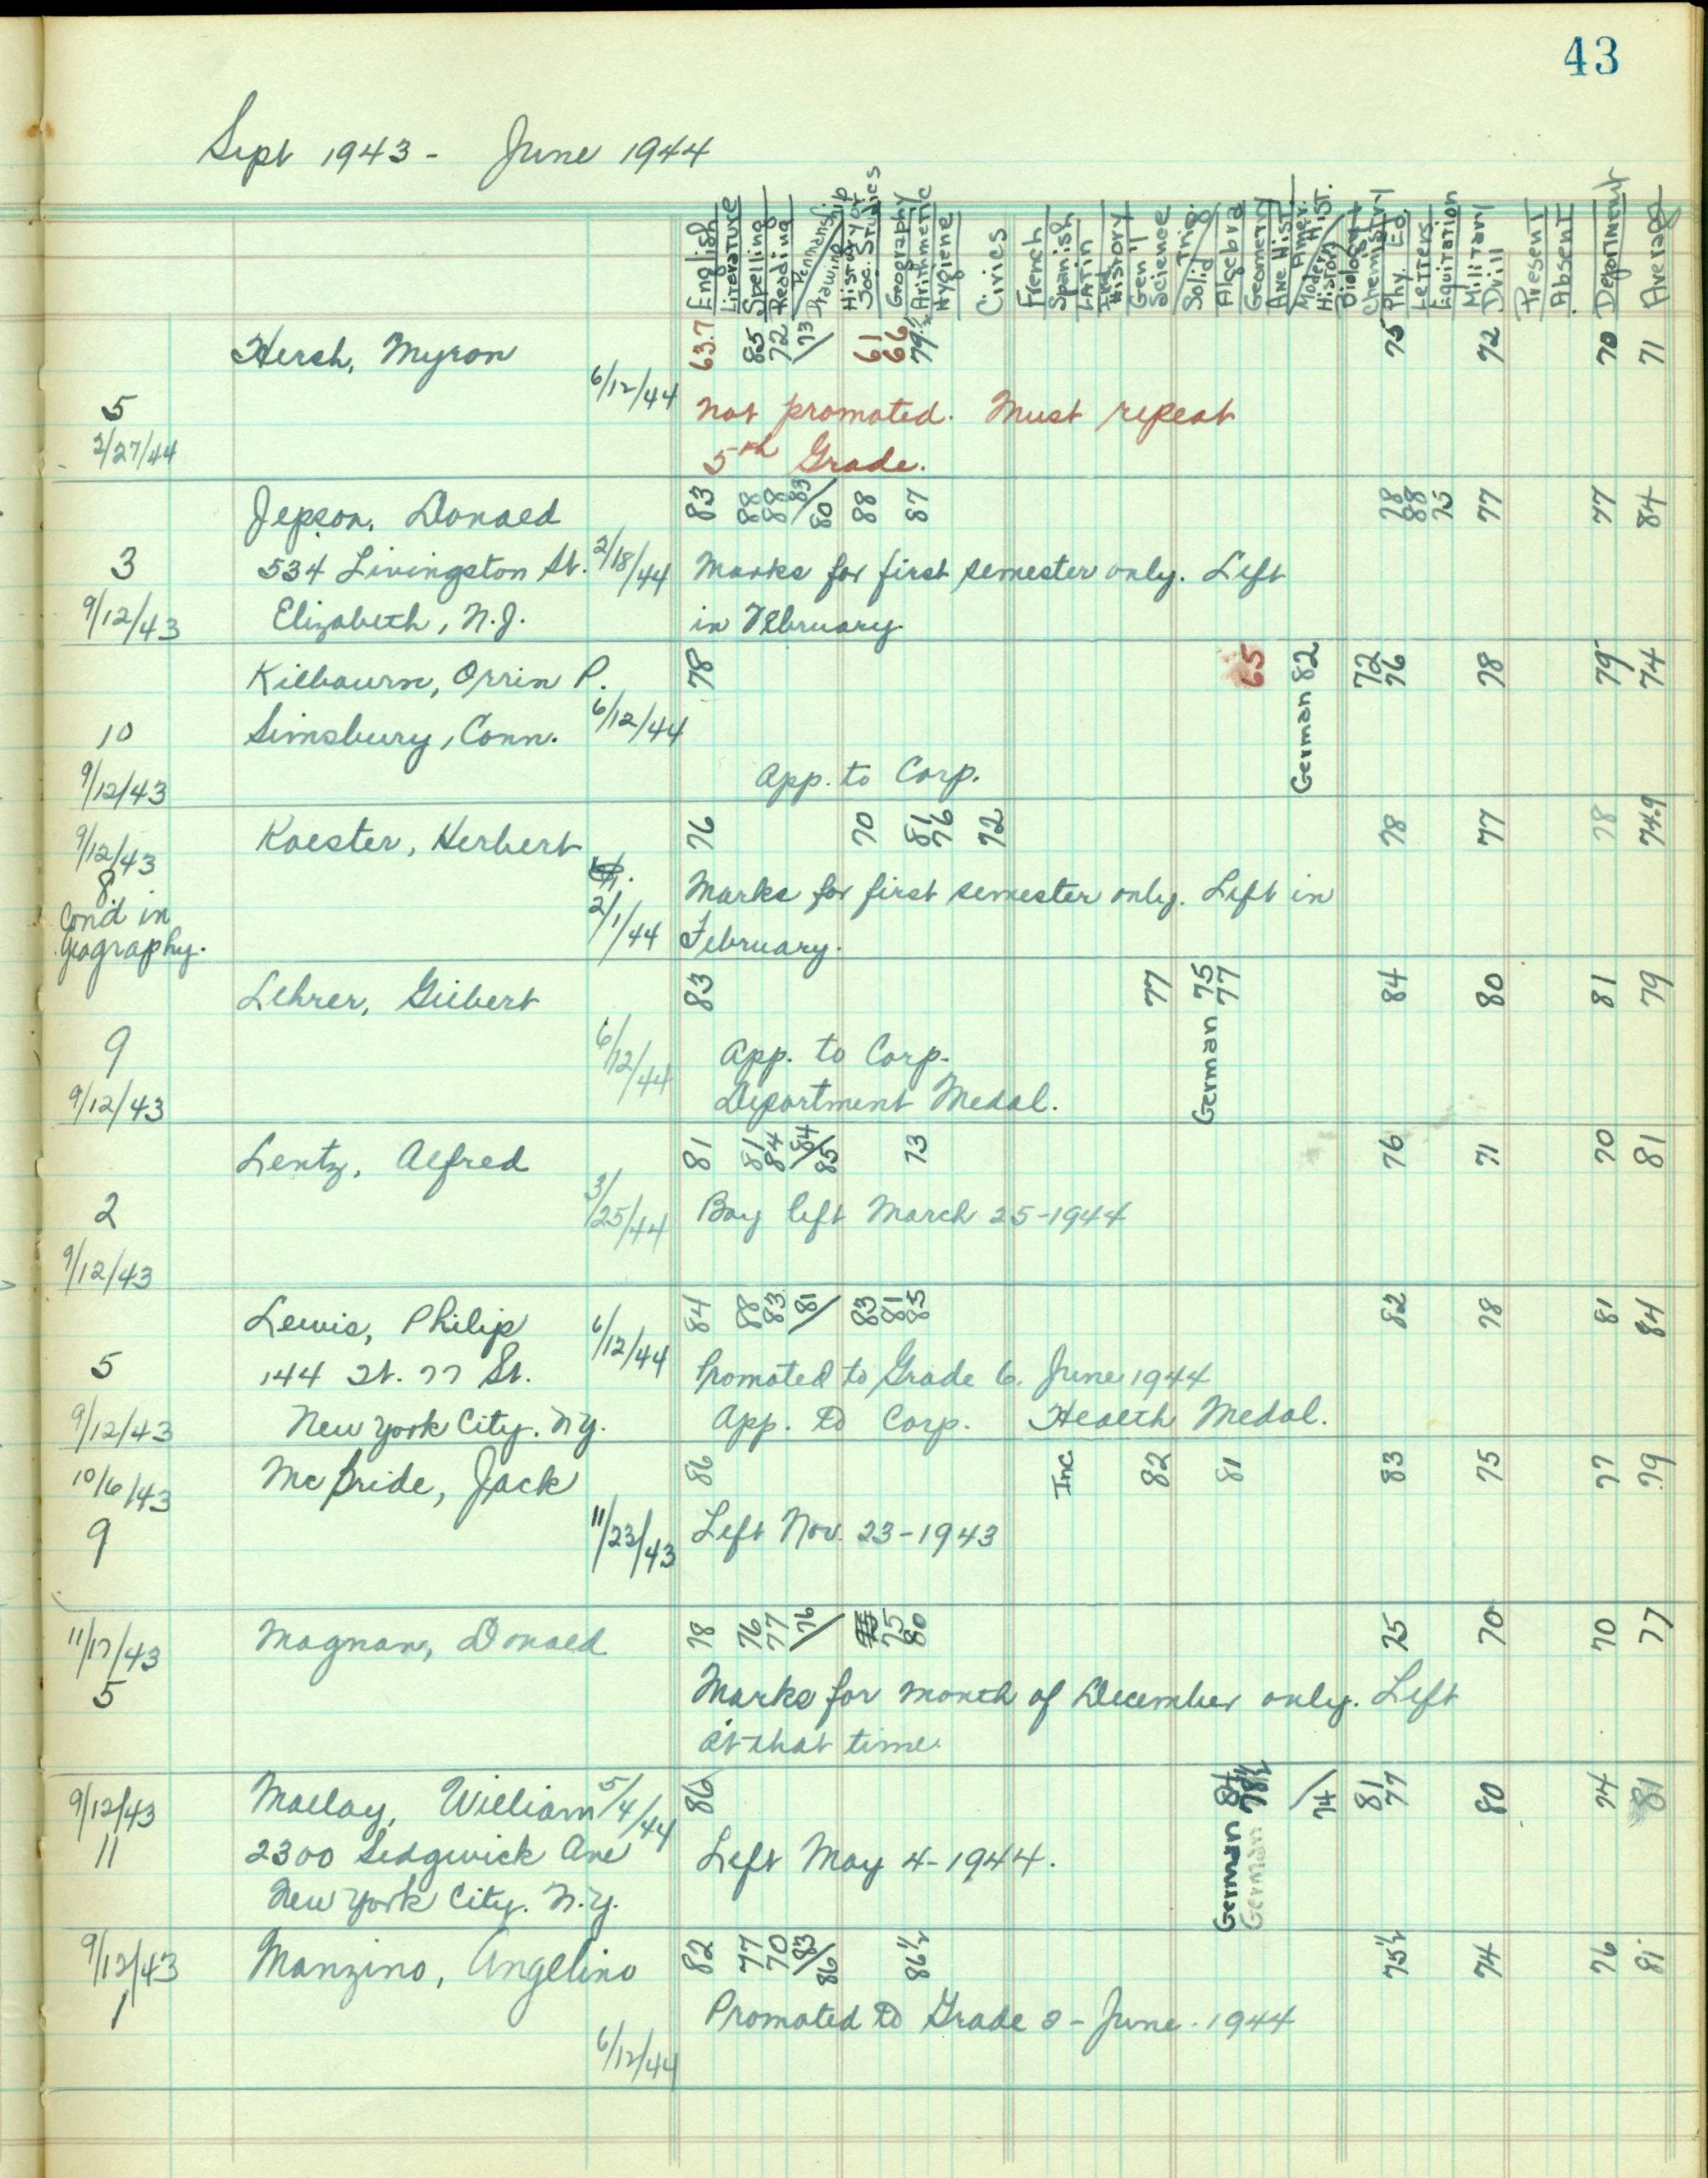 43
Sept 1943 - June 1944
English
Literature
Spelling
Reading
Penmanship
Drawing
History or
Soc. Studies
Geography
Arithmetic
Hygiene
Civics
French
Spanish
Latin
History
Gen'l
Science
Solid Trig.
Algebra
Geometry
Anc Hist
Amer. Hist.
Modern
History
Biology
Chemistry
Phy. Ed.
Letters
Equitation
Military
Drill
Present
Absent
Deportment
Average
Hersh, Myron 63.7 85 72 73/ 61 66 79½ 75 72 70 71
6/12/44
5 not promoted. Must repeat
2/27/44 5th Grade.
Jepson, Donald 83 88 88 83/80 88 87 78 88 75 77 77 84
3 534 Livingston St. 2/18/44 Marks for first semester only. Left
9/12/43 Elizabeth, N.J. in February
Kilbourn, Orrin P. 78 65 German 82 72 76 78 79 74
10 Simsbury, Conn. 6/12/44
9/12/43 App. to Corp.
9/12/43 Koester, Herbert 76 70 81 76 72 78 77 78 74.9
8 Marks for first semester only. Left in
Cond in
Geography. 2/1/44 February.
Lehrer, Gilbert 83 77 German 75 77 84 80 81 79
9 6/12/44 App. to Corp.
9/12/43 Deportment Medal.
Lentz, Alfred 81 81 84 84/85 73 76 71 70 81
2 3/25/44 Boy left March 25-1944
9/12/43
Lewis, Philip 6/12/44 84 88 83 81/ 83 81 85 82 78 81 84
5 144 W. 77 St. Promoted to Grade 6. June 1944
9/12/43 New York City. N.Y. App. to Corp. Health Medal.
10/6/43 McBride, Jack 86 Inc 82 81 83 75 77 79
9 11/23/43 Left Nov. 23-1943
11/17/43 Magnan, Donald 78 76 77 76/ 75 80 75 70 70 77
5 Marks for month of December only. Left
at that time.
9/12/43 Mallay, William 5/4/44 86 German 81 German 78½ /74 81 77 80 74 81
11 2300 Sedgwick Ave Left May 4-1944.
New York City. N.Y.
9/12/43 Manzino, Angelino 82 77 70 83/86 86½ 75½ 74 76 81
1 Promoted to Grade 2 - June. 1944
6/12/44